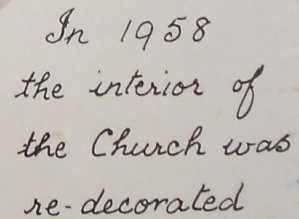 In 1958
the interior of
the Church was
re-decorated